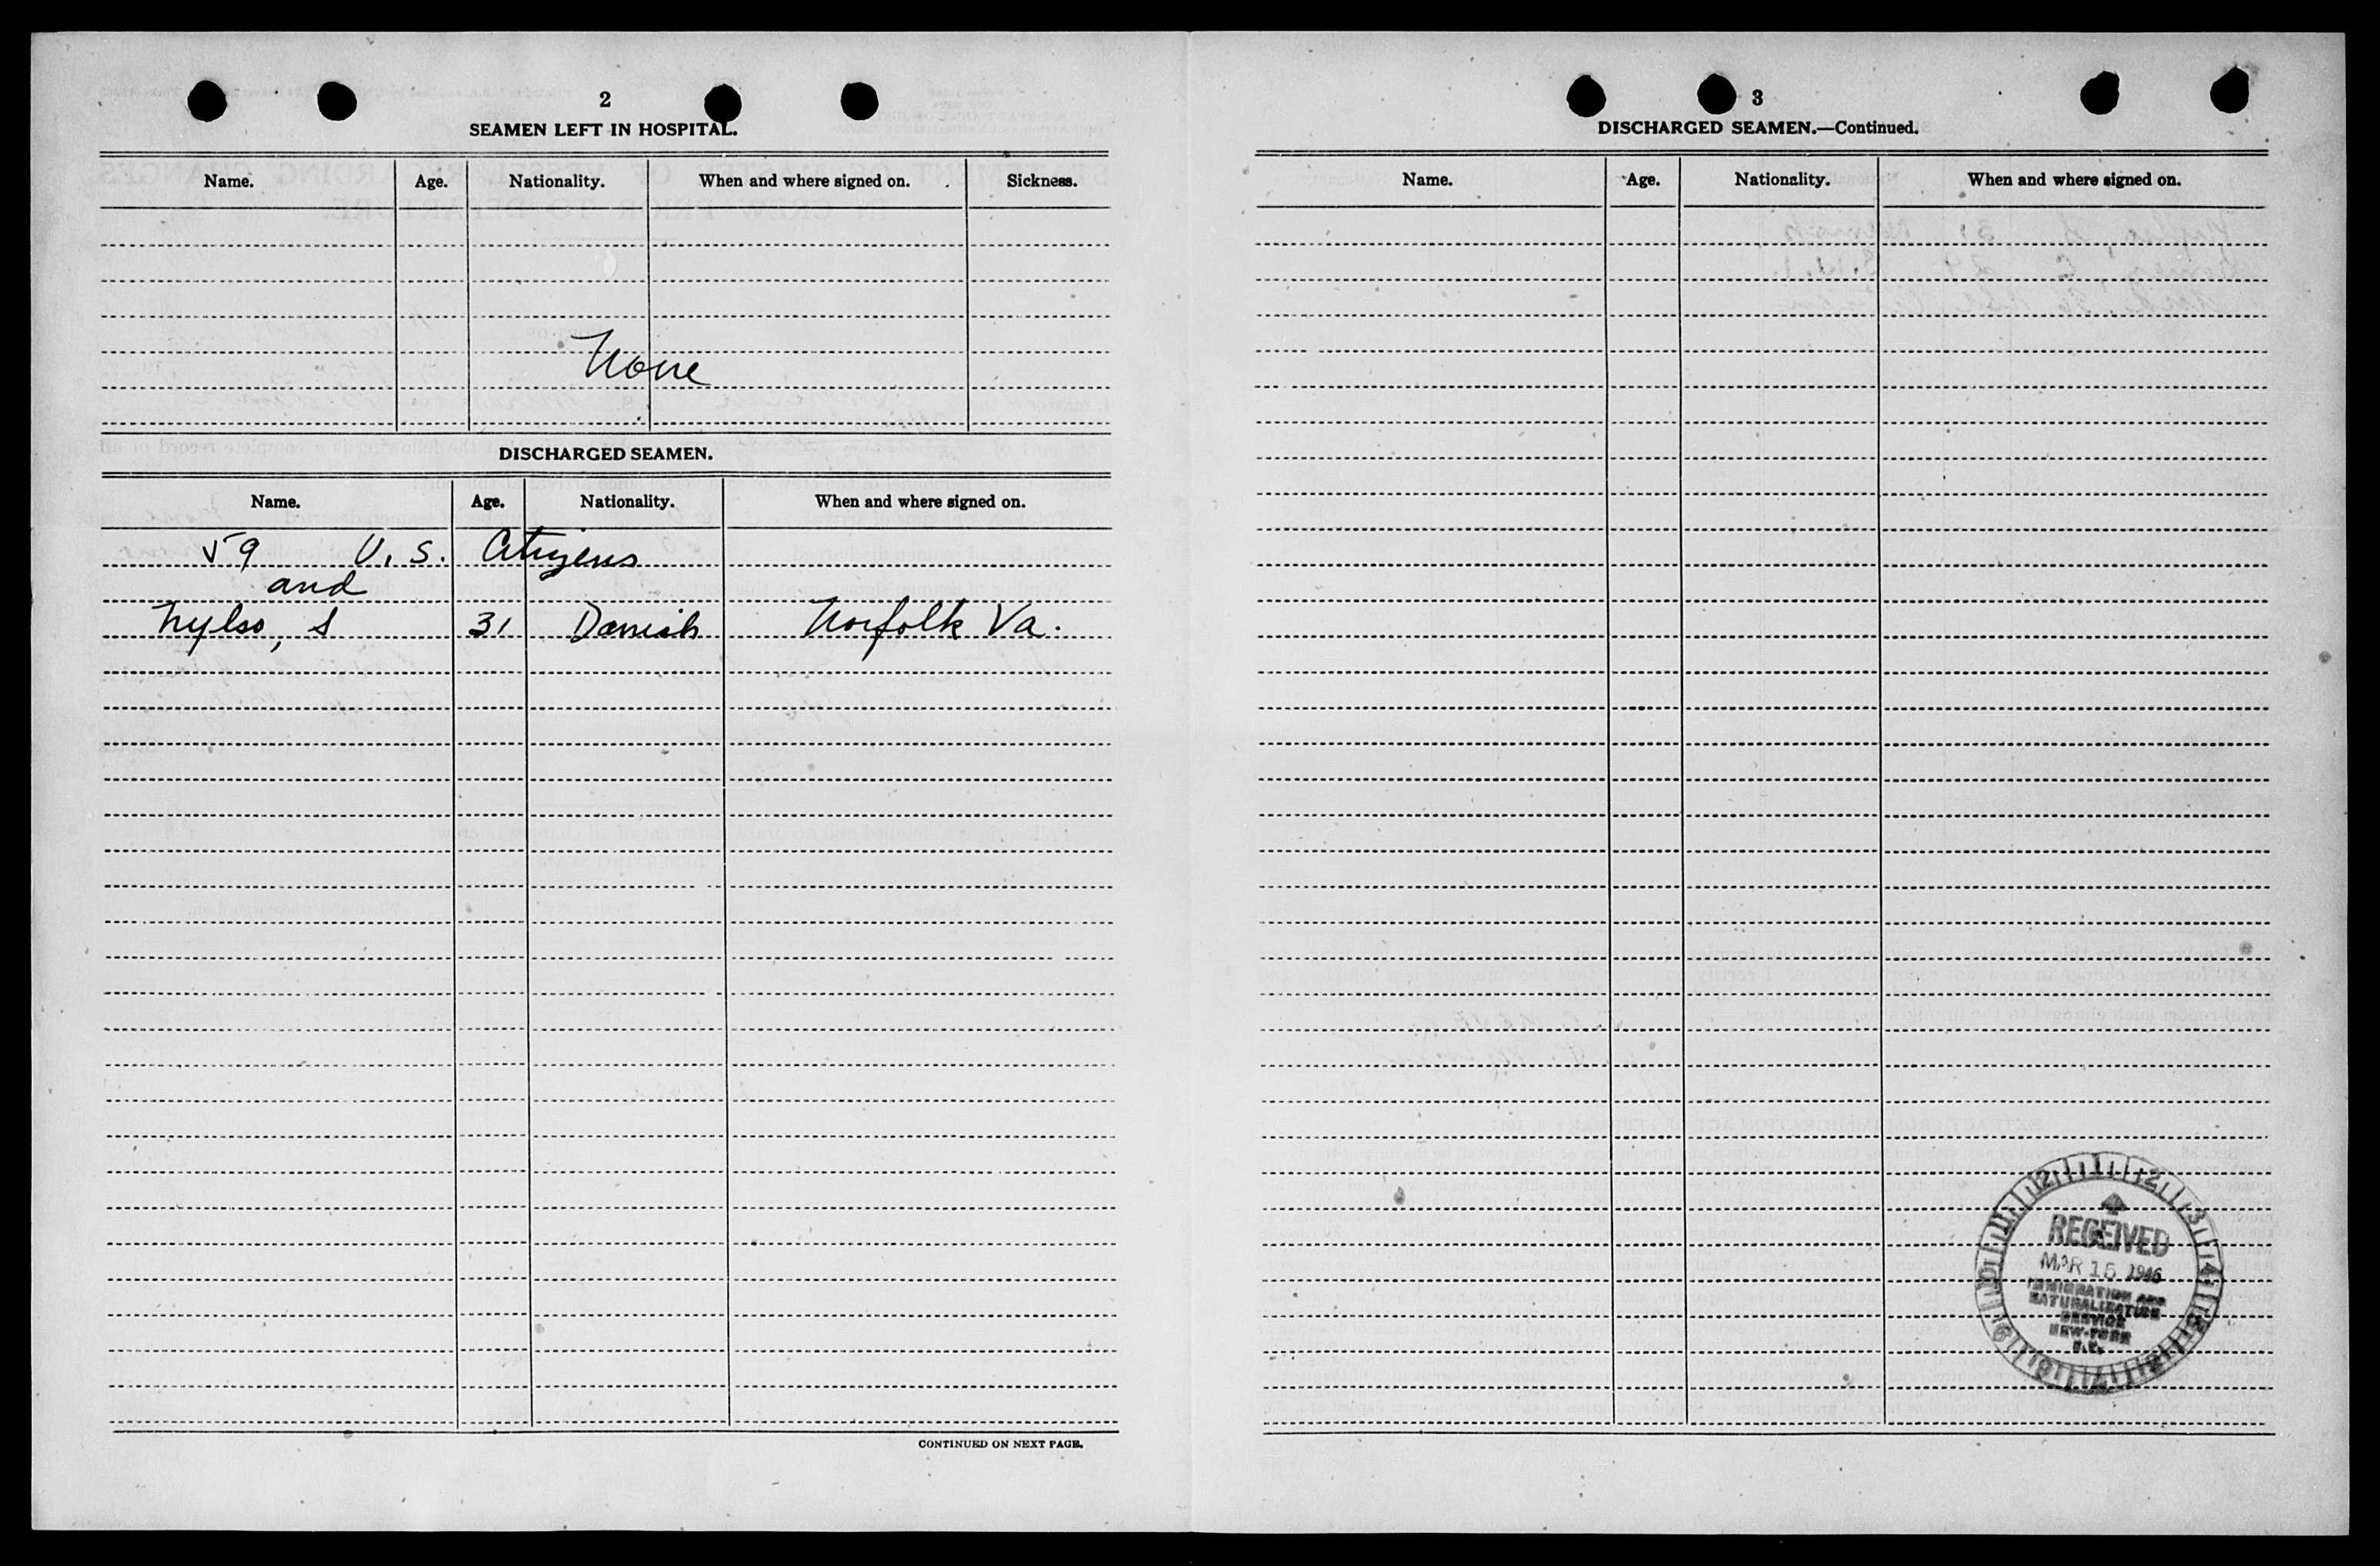 2
SEAMEN LEFT IN HOSPITAL.
Name. Age. Nationality. When and where signed on. Sickness.
None
DISCHARGED SEAMEN.
Name. Age. Nationality. When and where signed on.
59 U. S. Citizens
and
Nylso, S 31 Danish Norfolk Va.
CONTINUED ON NEXT PAGE.
3
DISCHARGED SEAMEN.—Continued.
Name. Age. Nationality. When and where signed on.
RECEIVED
MAR 15 1946
IMMIGRATION AND
NATURALIZATION
SERVICE
NEW-YORK
N.Y.